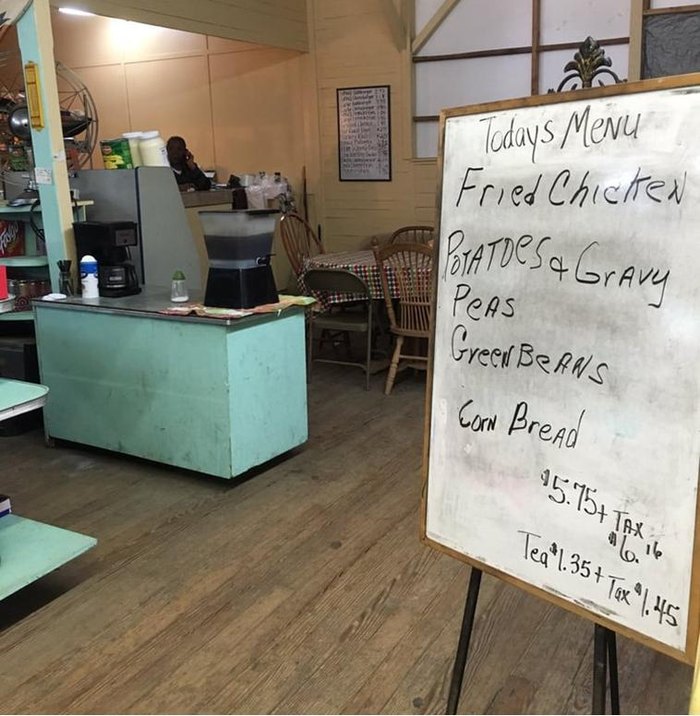 Todays Menu
Fried Chicken
Potatoes & Gravy
Peas
Green Beans
Corn Bread
$5.75 + Tax
$6.16
Tea $1.35 + Tax $1.45